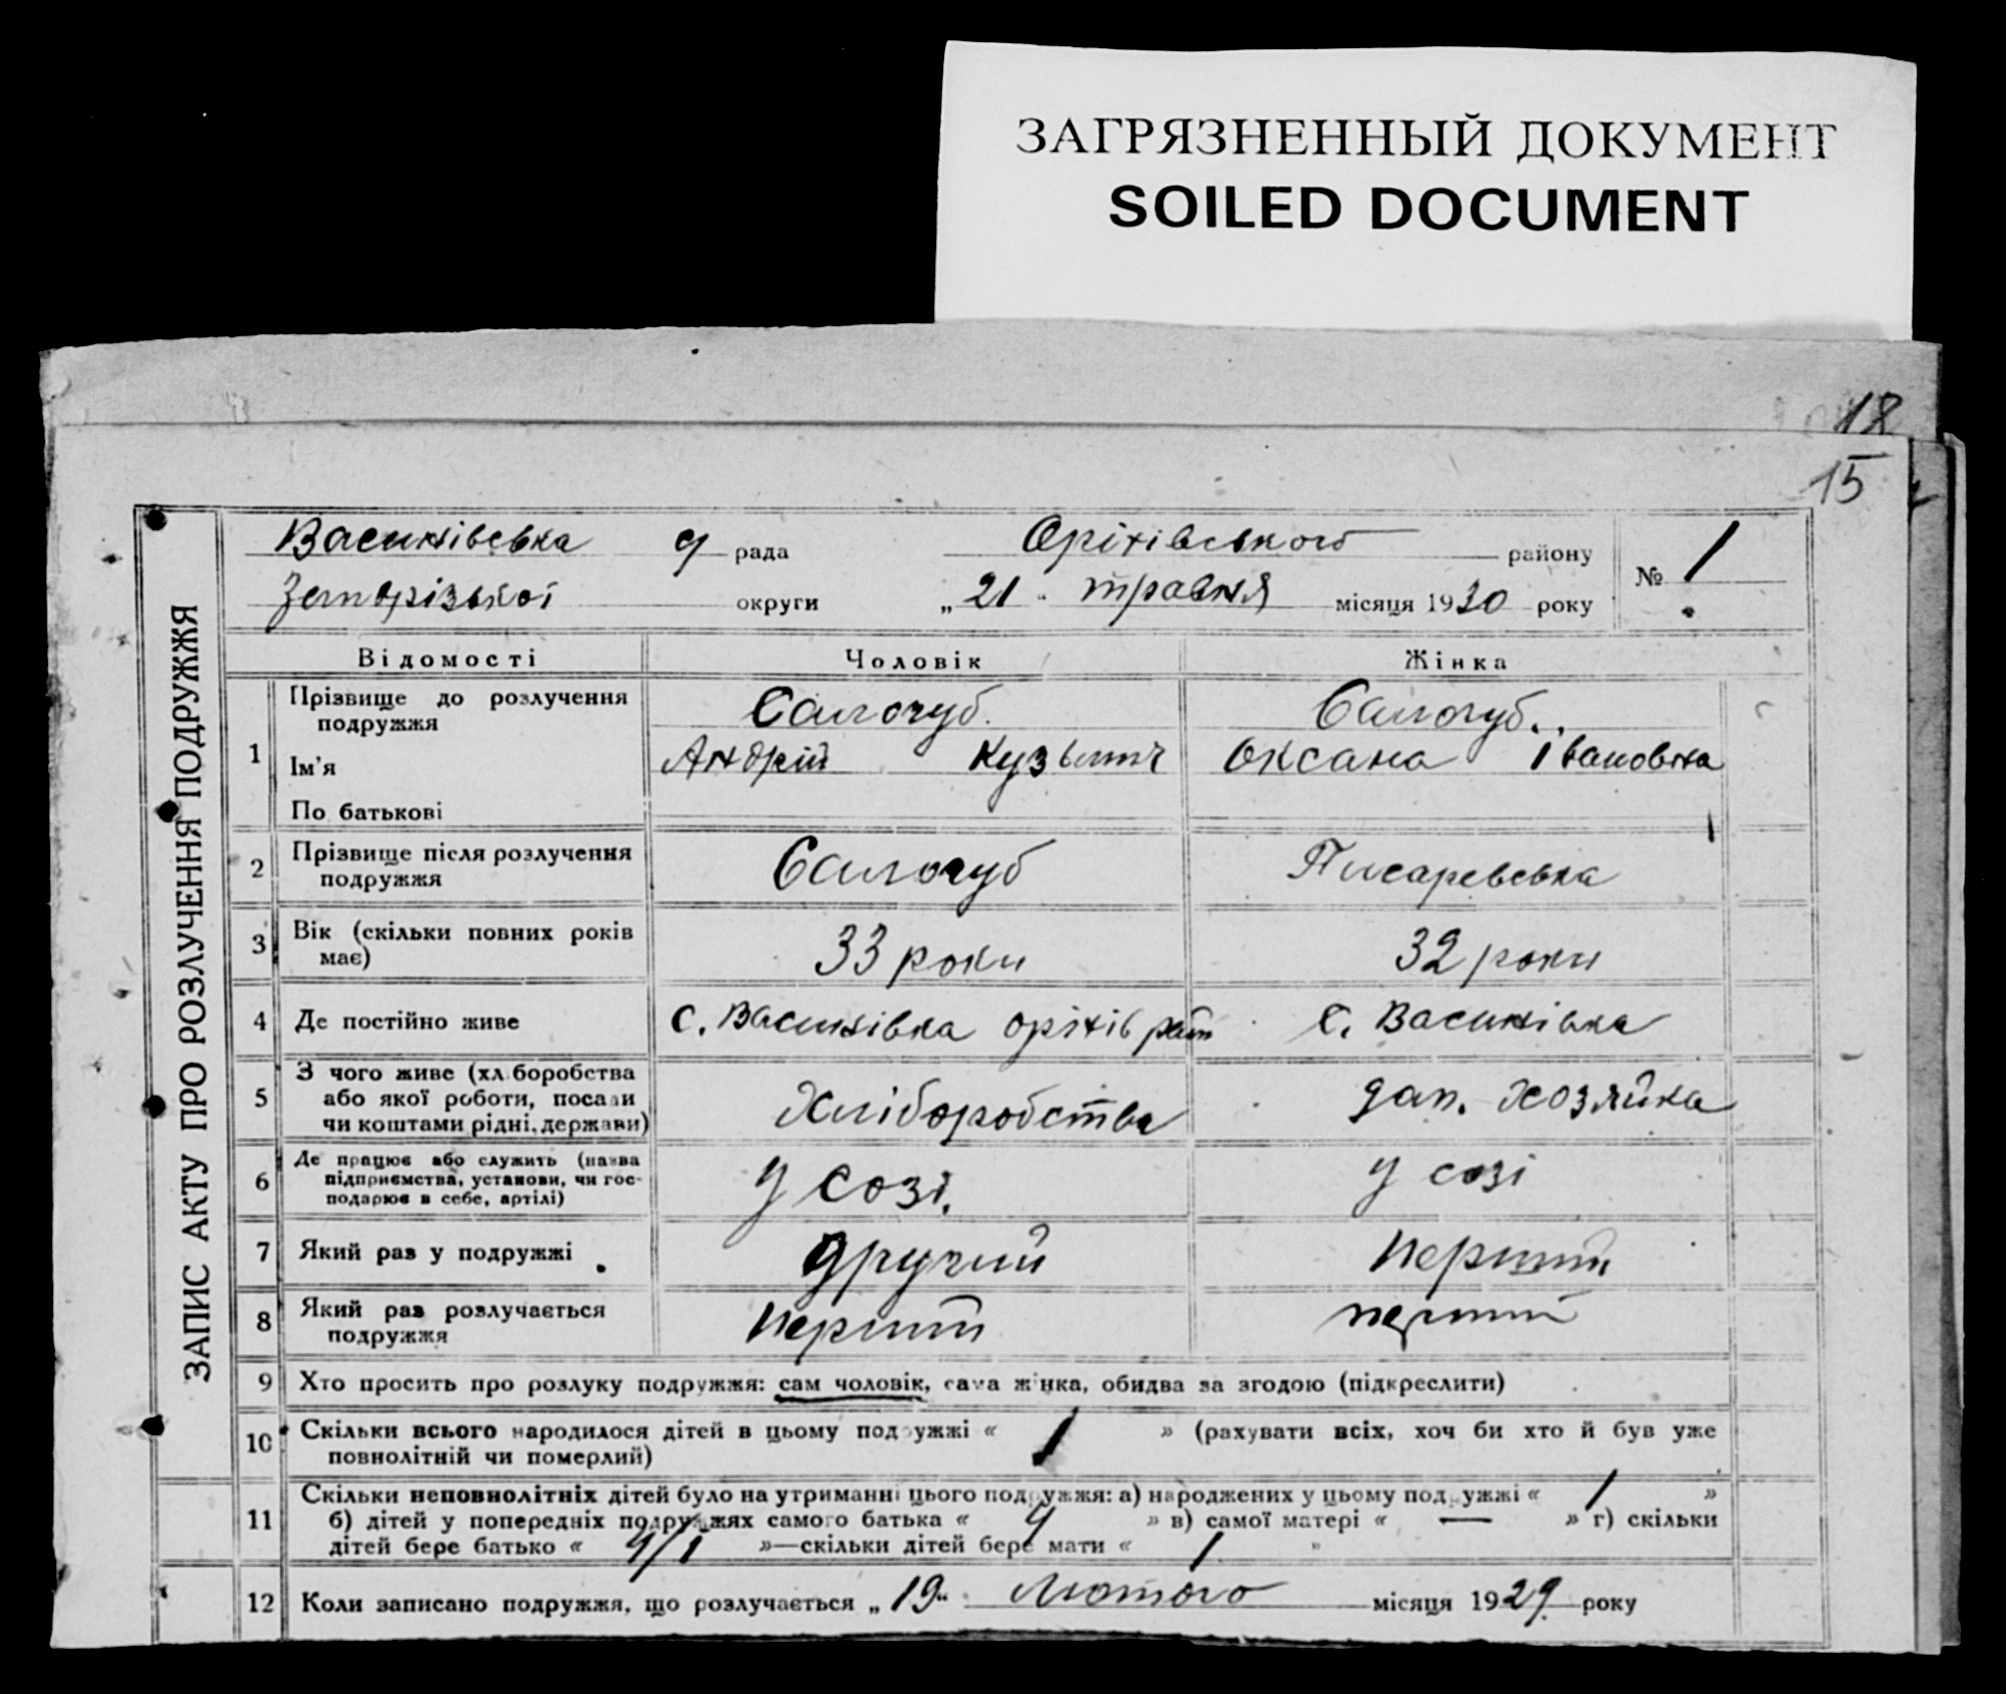 ЗАГРЯЗНЕННЫЙ ДОКУМЕНТ
SOILED DOCUMENT
18
15
ЗАПИС АКТУ ПРО РОЗЛУЧЕННЯ ПОДРУЖЖЯ
Васинівська с/ рада Оріхівського району № 1
Запорізької округи „21“ травня місяця 1930 року
Відомості Чоловік Жінка
1 Прізвище до розлучення подружжя Салогуб. Салогуб.
Ім’я Андрій Кузьмич Оксана Івановна
По батькові
2 Прізвище після розлучення подружжя Салогуб Писаревська
3 Вік (скільки повних років має) 33 роки 32 роки
4 Де постійно живе с. Васинівка оріхів район с. Васинівка
5 З чого живе (хліборобства або якої роботи, посади чи коштами рідні, держави) Хліборобства дом. хозяйка
6 Де працює або служить (назва підприємства, установи, чи господарює в себе, артілі) у созі. у созі
7 Який раз у подружжі другий перший
8 Який раз розлучається подружжя перший перший
9 Хто просить про розлуку подружжя: сам чоловік, сама жінка, обидва за згодою (підкреслити)
10 Скільки всього народилося дітей в цьому подружжі « 1 » (рахувати всіх, хоч би хто й був уже
повнолітній чи померлий)
11 Скільки неповнолітніх дітей було на утриманні цього подружжя: а) народжених у цьому подружжі « 1 »
б) дітей у попередніх подружжях самого батька « 4 » в) самої матері « — » г) скільки
дітей бере батько « »—скільки дітей бере мати « 1 »
12 Коли записано подружжя, що розлучається „19“ Лютого місяця 1929 року